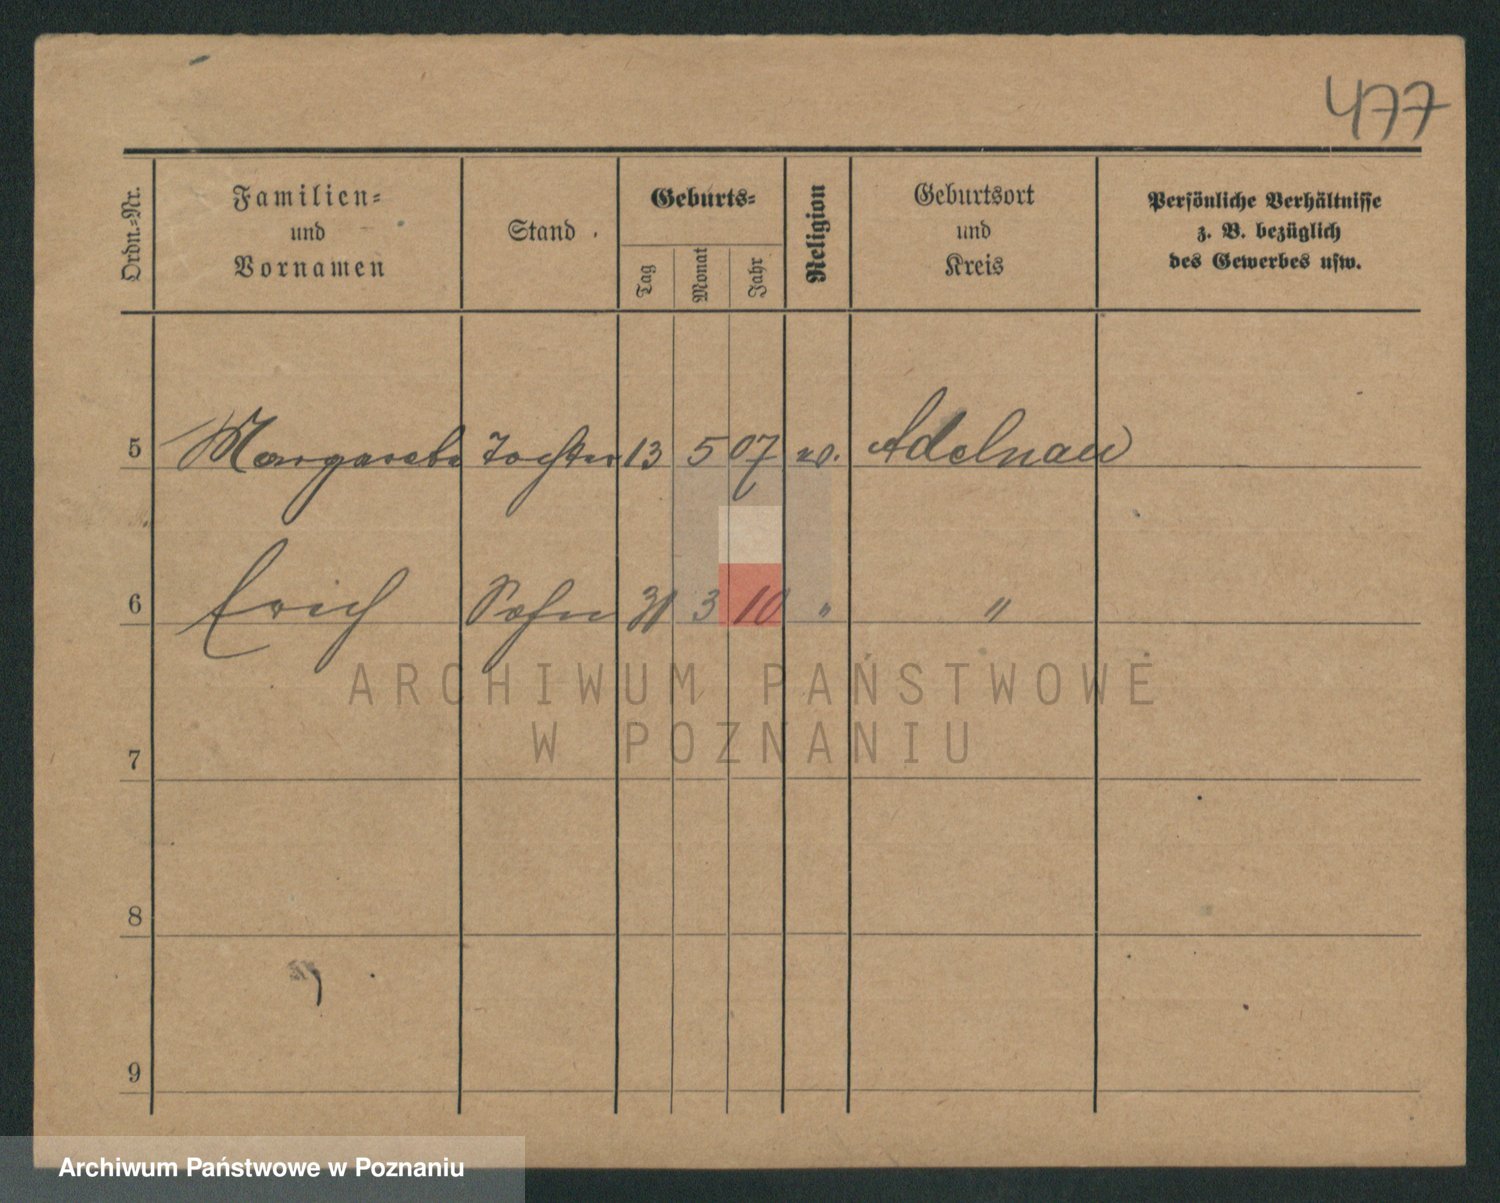 477
Ordn.=Nr.
Familien=
und
Vornamen
Stand
Geburts=
Tag
Monat
Jahr
Religion
Geburtsort
und
Kreis
Persönliche Verhältnisse
z. B. bezüglich
des Gewerbes usw.
5 Margarete Tochter 13 5 07 Adelnau
6 Erich Sohn 31 3 10 " "
ARCHIWUM PAŃSTWOWE
W POZNANIU
7
8
9
Archiwum Państwowe w Poznaniu